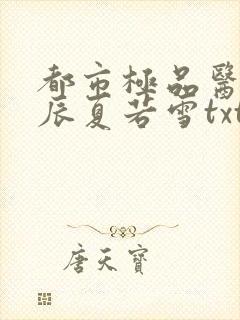 都市極品醫
辰夏若雪txt
唐天寶